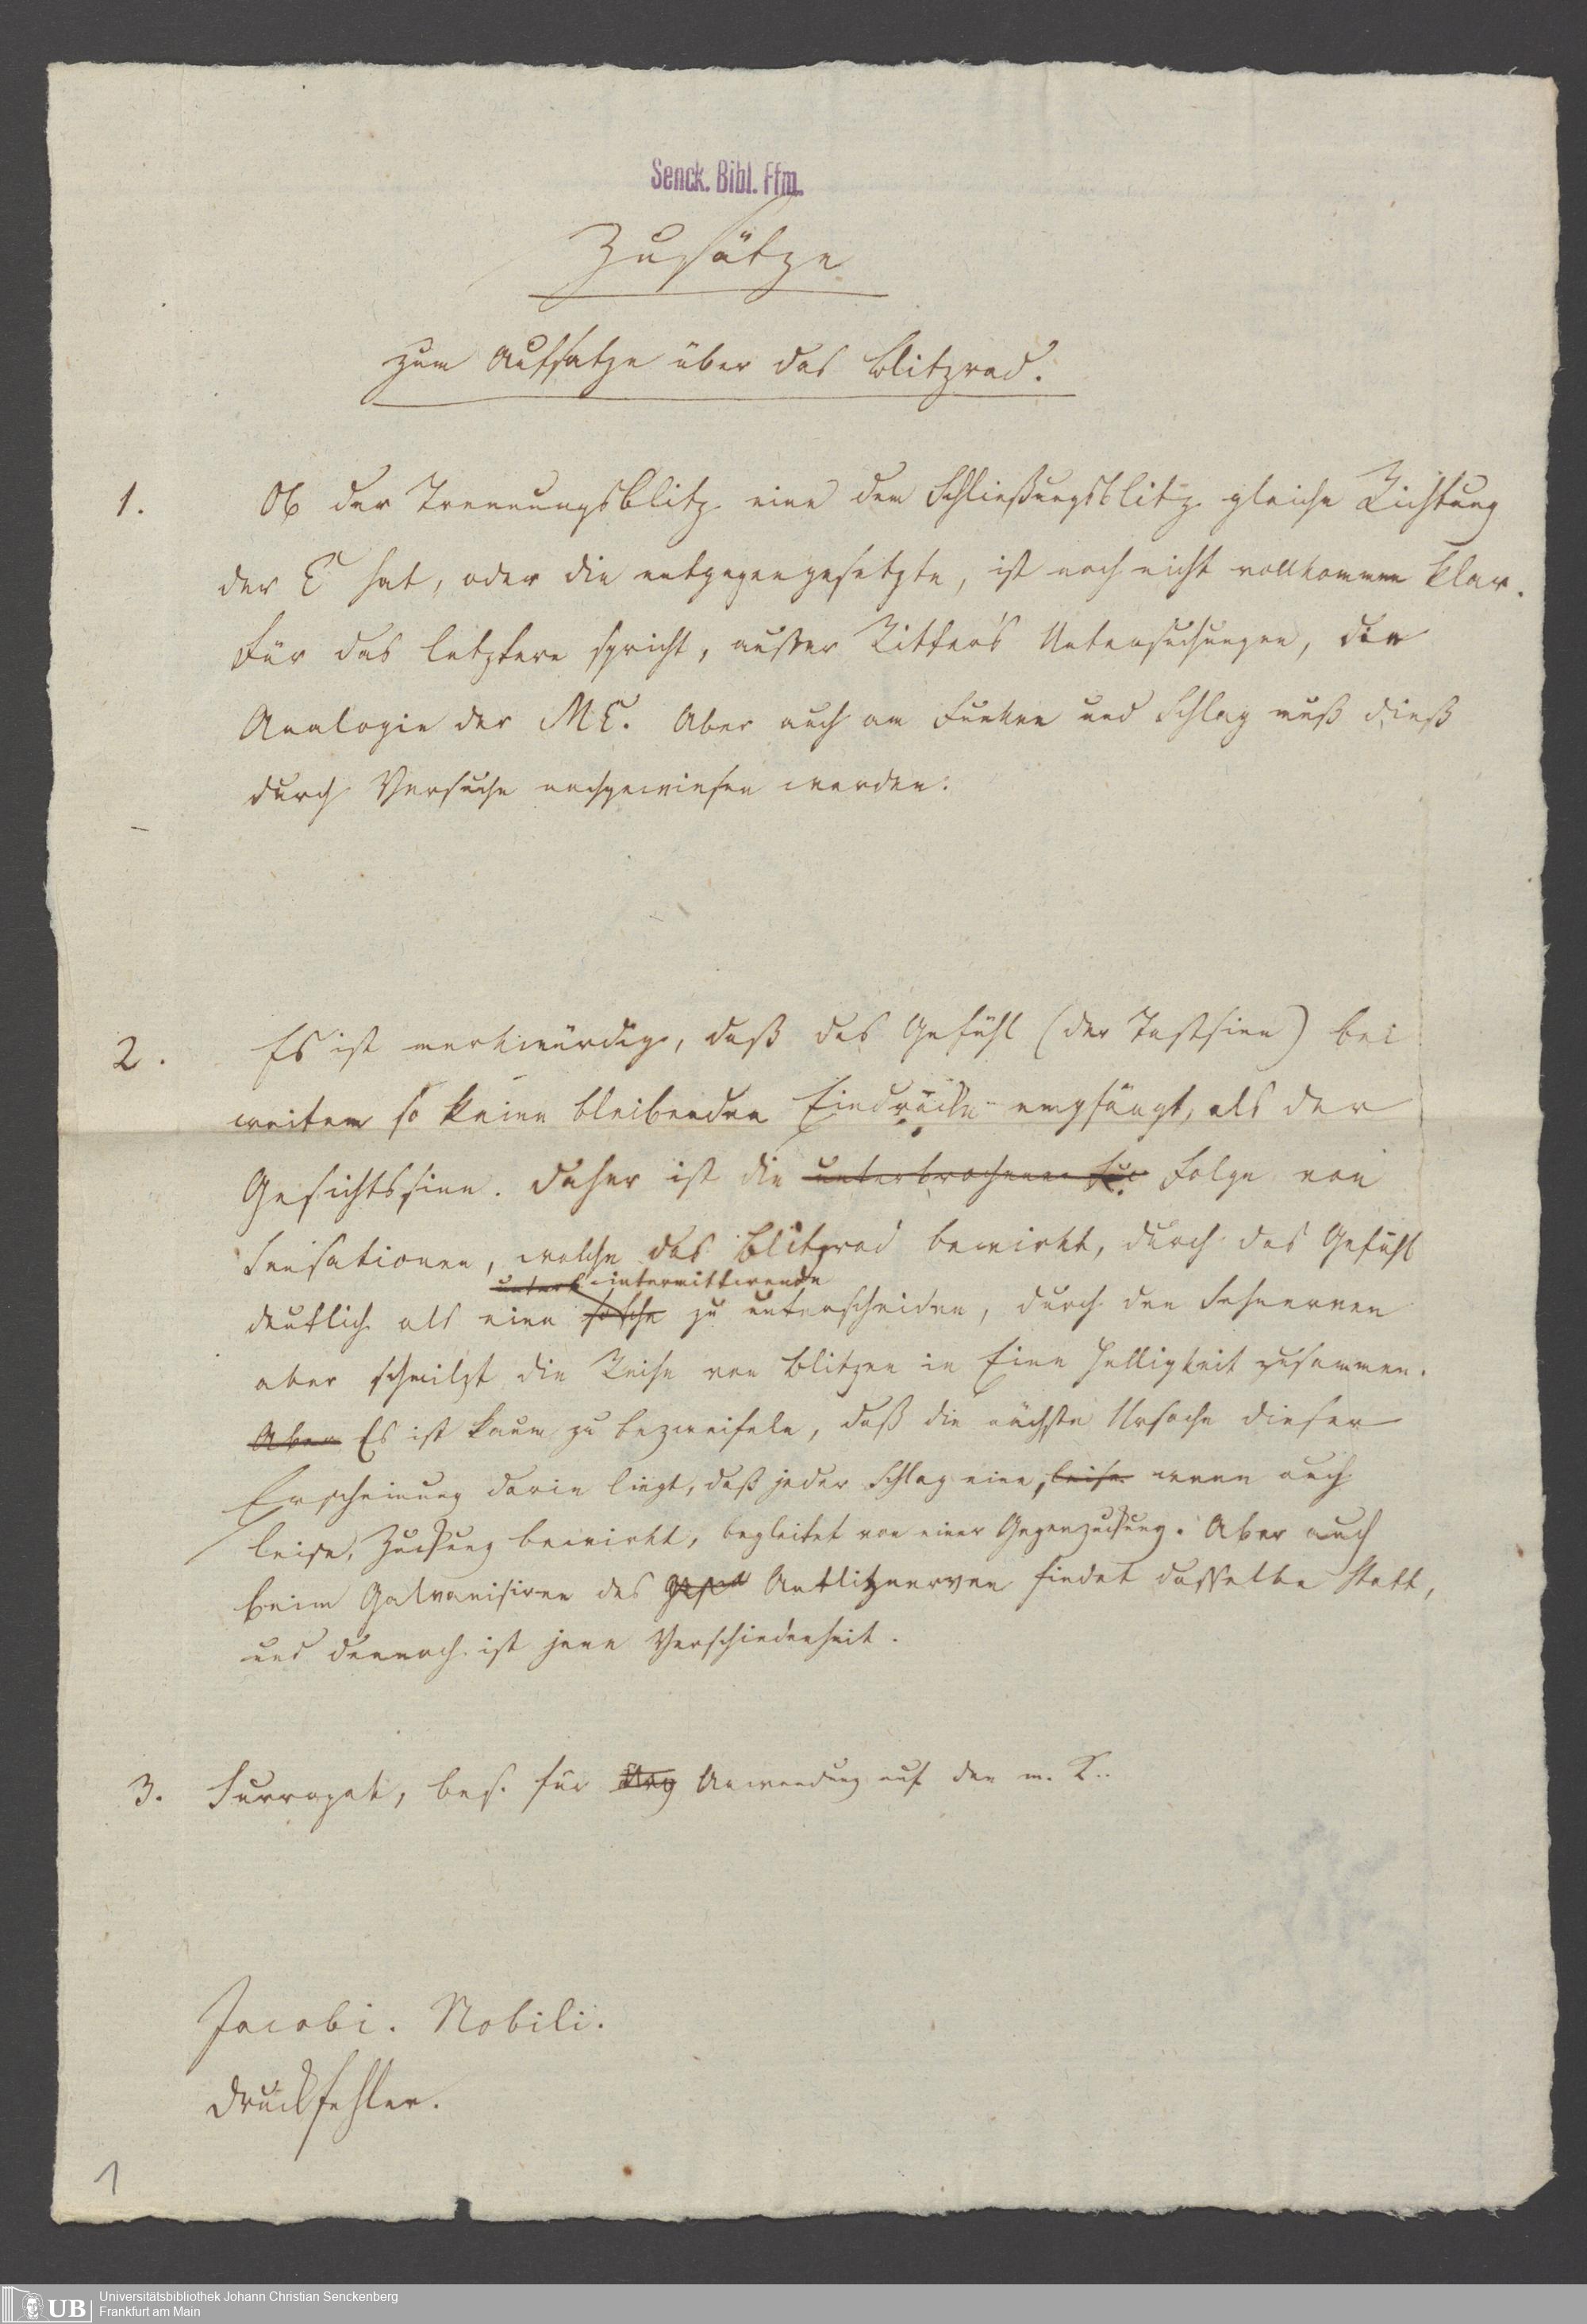 Senck. Bibl. Ffm.
Zusätze
zum Aufsatze über das Blitzrad.
1. Ob der Trennungsblitz eine dem Schließungsblitz gleiche Richtung
der E hat, oder die entgegengesetzte, ist noch nicht vollkommen klar.
Für das letztere spricht, ausser Ritter's Untersuchungen, die
Analogie der ME. Aber auch am Funken und Schlag muß dieß
durch Versuche nachgewiesen werden.
2. Es ist merkwürdig, daß das Gefühl (der Tastsinn) bei
weitem so keine bleibenden Eindrücke empfängt, als der
Gesichtssinn. Daher ist die unterbrochene Folge von
Sensationen, welche das Blitzrad bewirkt, durch das Gefühl
unterb intermittirende
deutlich als eine solche zu unterscheiden, durch den Sehnerven
aber schmilzt die Reihe von Blitzen in Eine Helligkeit zusammen.
Aber Es ist kaum zu bezweifeln, daß die nächste Ursache dieser
Erscheinung darin liegt, daß jeder Schlag eine, leise wenn auch
leise, Zuckung bewirkt, begleitet von einer Gegenzuckung. Aber auch
beim Galvanisiren des Antlitznerven findet dasselbe Statt,
und dennoch ist jene Verschiedenheit.
3. Surrogat, bes. für Anwendung auf den m. K..
Jacobi. Nobili.
Druckfehler.
1
UB
Universitätsbibliothek Johann Christian Senckenberg
Frankfurt am Main